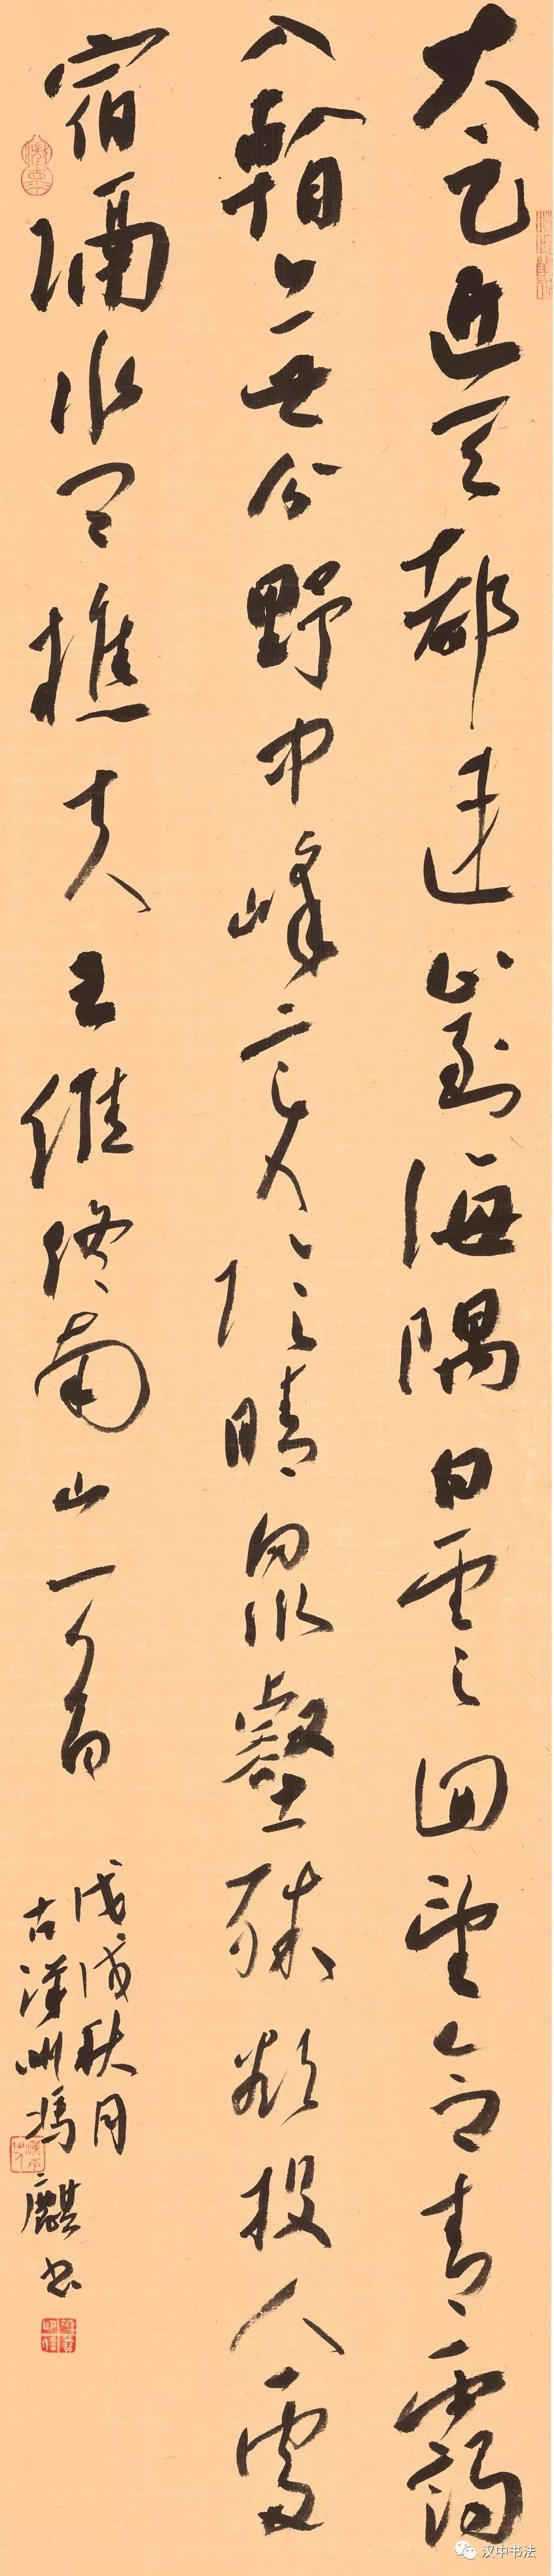 太乙近天都連山到海隅白雲回望合青靄
入看無分野中峰變陰晴衆壑殊欲投人處
宿隔水問樵夫王維終南山一首
戊戌秋月
古洋州馮麒書
汉中书法